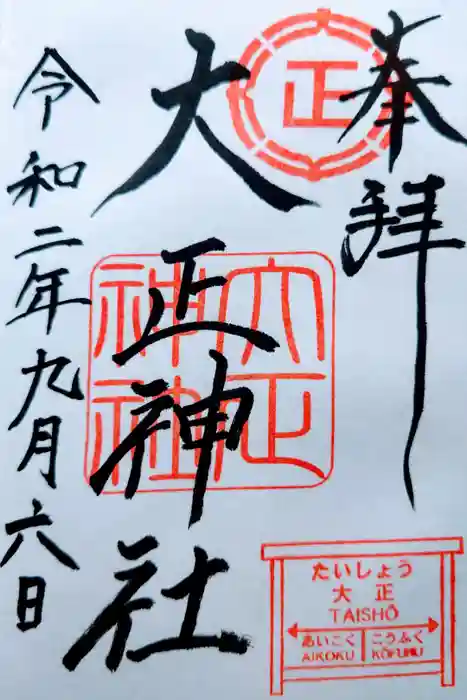 奉拝
正
大正神社
大正神社
令和二年九月六日
たいしょう
大正
TAISHŌ
あいこく こうふく
AIKOKU KŌFUKU